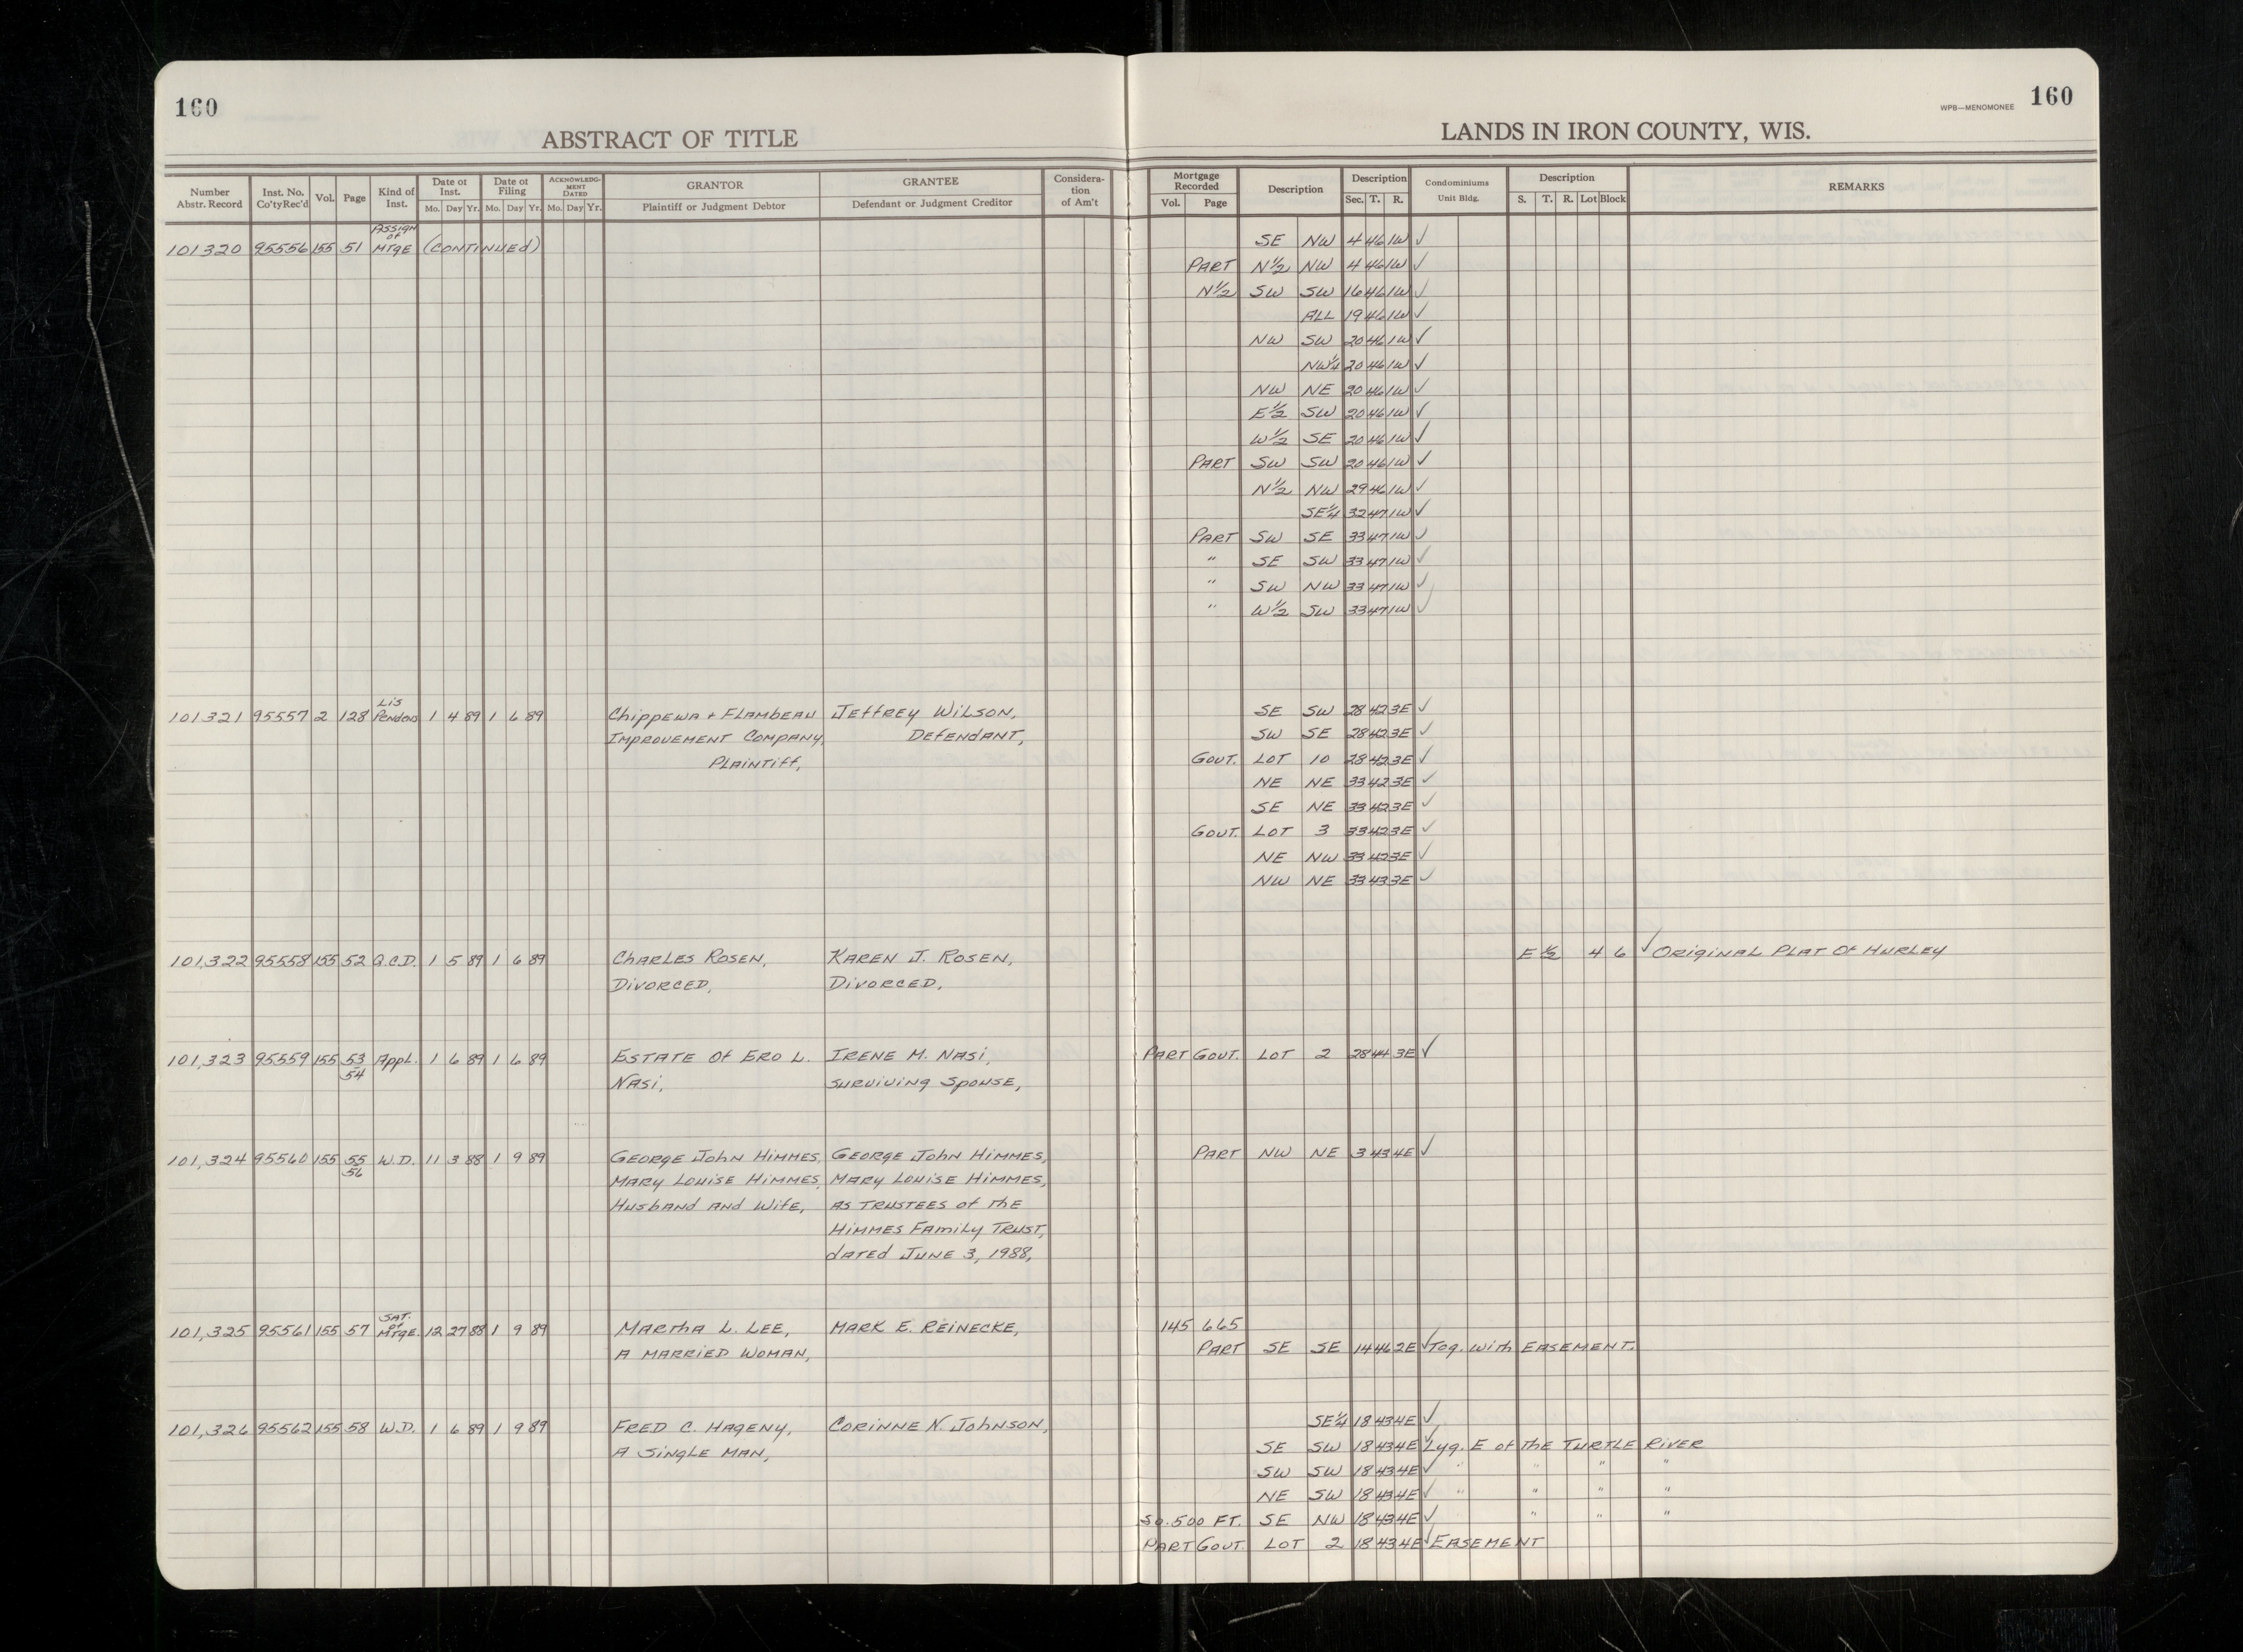 160
ABSTRACT OF TITLE
LANDS IN IRON COUNTY, WIS.
WPB—MENOMONEE 160
Number Abstr. Record | Inst. No. Co'ty Rec'd | Vol. | Page | Kind of Inst. | Date of Inst. Mo. Day Yr. | Date of Filing Mo. Day Yr. | ACKNOWLEDGMENT DATED Mo. Day Yr. | GRANTOR Plaintiff or Judgment Debtor | GRANTEE Defendant or Judgment Creditor | Consideration of Am't | Mortgage Recorded Vol. Page | Description | Description Sec. T. R. | Condominiums Unit Bldg. | Description S. T. R. Lot Block | REMARKS
101320 95556 155 51 Assign of Mtge (Continued) SE NW 4 46 1W ✓
PART N½ NW 4 46 1W ✓
N½ SW SW 16 46 1W ✓
ALL 19 46 1W ✓
NW SW 20 46 1W ✓
NW¼ 20 46 1W ✓
NW NE 20 46 1W ✓
E½ SW 20 46 1W ✓
W½ SE 20 46 1W ✓
PART SW SW 20 46 1W ✓
N½ NW 29 46 1W ✓
SE¼ 32 47 1W ✓
PART SW SE 33 47 1W ✓
" SE SW 33 47 1W ✓
" SW NW 33 47 1W ✓
" W½ SW 33 47 1W ✓
101321 95557 2 128 Lis Pendens 1 4 89 1 6 89 Chippewa + Flambeau Jeffrey Wilson, SE SW 28 42 3E ✓
Improvement Company, Defendant, SW SE 28 42 3E ✓
Plaintiff, GOVT. LOT 10 28 42 3E ✓
NE NE 33 42 3E ✓
SE NE 33 42 3E ✓
GOVT. LOT 3 33 42 3E ✓
NE NW 33 42 3E ✓
NW NE 33 43 3E ✓
101,322 95558 155 52 Q.C.D. 1 5 89 1 6 89 Charles Rosen, Karen J. Rosen, E ½ 4 6 ✓ Original Plat of Hurley
Divorced, Divorced,
101,323 95559 155 53 54 Appl. 1 6 89 1 6 89 Estate of Ero L. Irene M. Nasi, PART GOVT. LOT 2 28 44 3E ✓
Nasi, surviving spouse,
101,324 95560 155 55 56 W.D. 11 3 88 1 9 89 George John Himmes, George John Himmes, PART NW NE 3 43 4E ✓
Mary Louise Himmes, Mary Louise Himmes,
Husband and Wife, as trustees of the
Himmes Family Trust,
dated June 3, 1988,
101,325 95561 155 57 Sat. of Mtge. 12 27 88 1 9 89 Martha L. Lee, Mark E. Reinecke, 145 665
A married woman, PART SE SE 14 46 2E ✓ Tog. with EASEMENT.
101,326 95562 155 58 W.D. 1 6 89 1 9 89 Fred C. Hageny, Corinne N. Johnson, SE¼ 18 43 4E ✓
A single man, SE SW 18 43 4E ✓ Lyg. E of the Turtle River
SW SW 18 43 4E ✓ " " " "
NE SW 18 43 4E ✓ " " " "
SO. 500 FT. SE NW 18 43 4E ✓ " " "
PART GOVT. LOT 2 18 43 4E ✓ EASEMENT